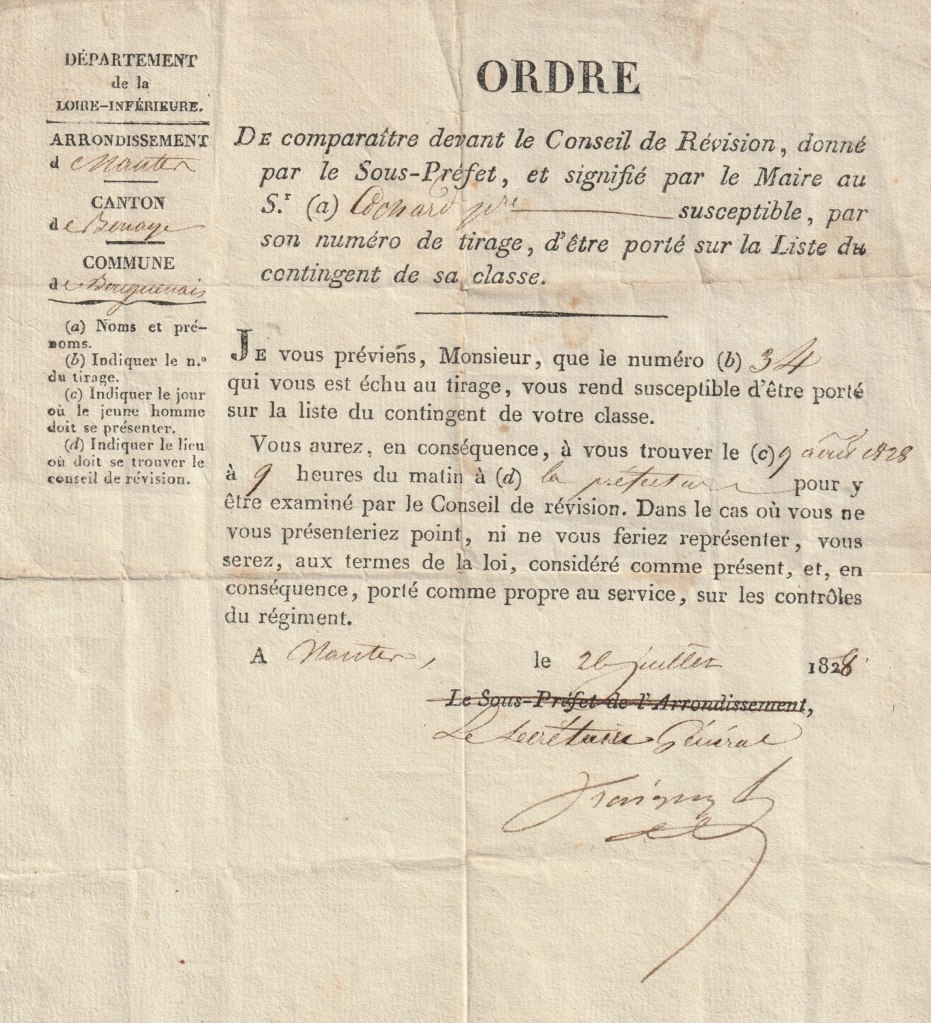 DÉPARTEMENT
de la
LOIRE-INFÉRIEURE.
ARRONDISSEMENT
de Nantes
CANTON
de Bouaye
COMMUNE
de Bouguenais
(a) Noms et pré-
noms.
(b) Indiquer le n.º
du tirage.
(c) Indiquer le jour
où le jeune homme
doit se présenter.
(d) Indiquer le lieu
où doit se trouver le
conseil de révision.
ORDRE
DE comparaître devant le Conseil de Révision, donné
par le Sous-Préfet, et signifié par le Maire au
S.r (a) susceptible, par
son numéro de tirage, d'être porté sur la Liste du
contingent de sa classe.
JE vous préviens, Monsieur, que le numéro (b) 34
qui vous est échu au tirage, vous rend susceptible d'être porté
sur la liste du contingent de votre classe.
Vous aurez, en conséquence, à vous trouver le (c) 9 1828
à 9 heures du matin à (d) la préfecture pour y
être examiné par le Conseil de révision. Dans le cas où vous ne
vous présenteriez point, ni ne vous feriez représenter, vous
serez, aux termes de la loi, considéré comme présent, et, en
conséquence, porté comme propre au service, sur les contrôles
du régiment.
A Nantes, le 26 juillet 1828
Le Sous-Préfet de l'Arrondissement,
Le Secrétaire Général